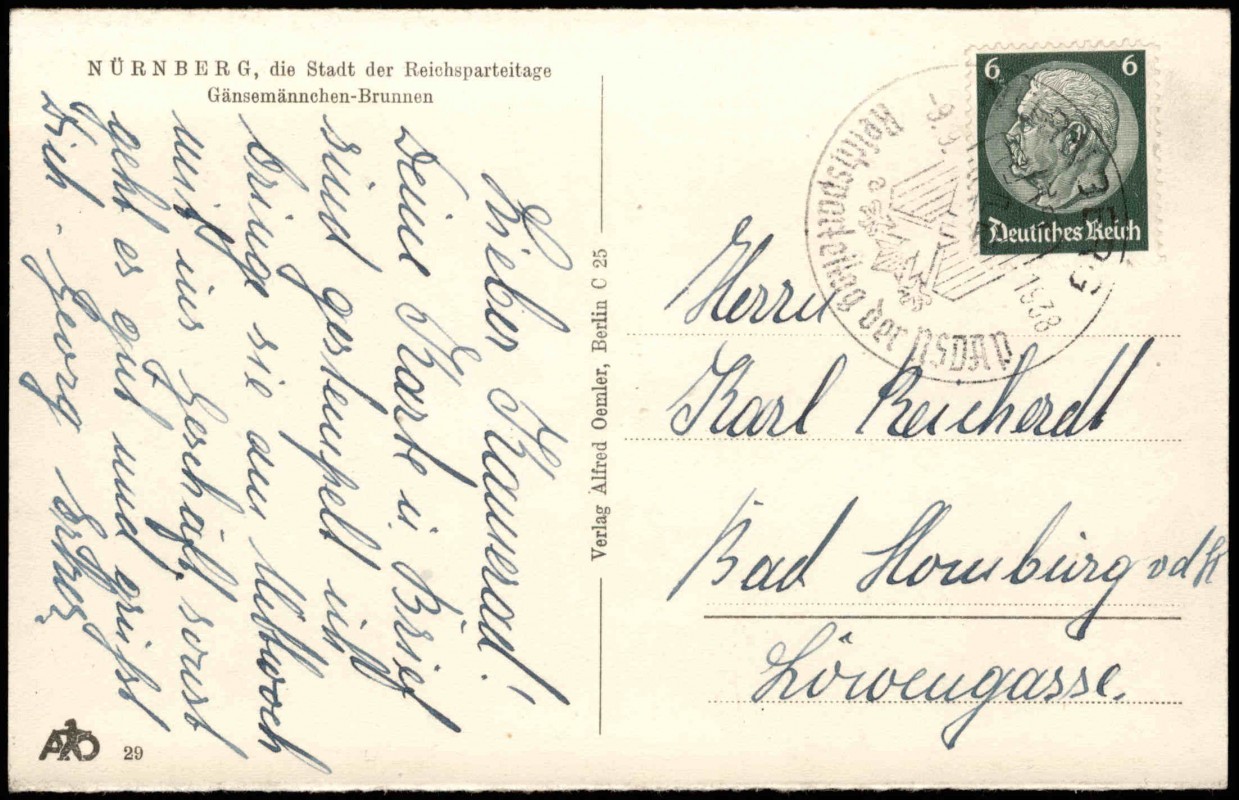 NÜRNBERG, die Stadt der Reichsparteitage
Gänsemännchen-Brunnen
Lieber Kamerad!
Deine Karte u. Brief
sind gestempelt ich
bringe sie am Mittwoch
mit ins Geschäft, sonst
geht es gut und grüßt
Dich Georg
Verlag Alfred Oemler, Berlin C 25
6 6
Deutsches Reich
NÜRNBERG
1938
Reichsparteitag der NSDAP
Herrn
Karl Reicherdt
Bad Homburg vdH
Löwengasse.
AO 29